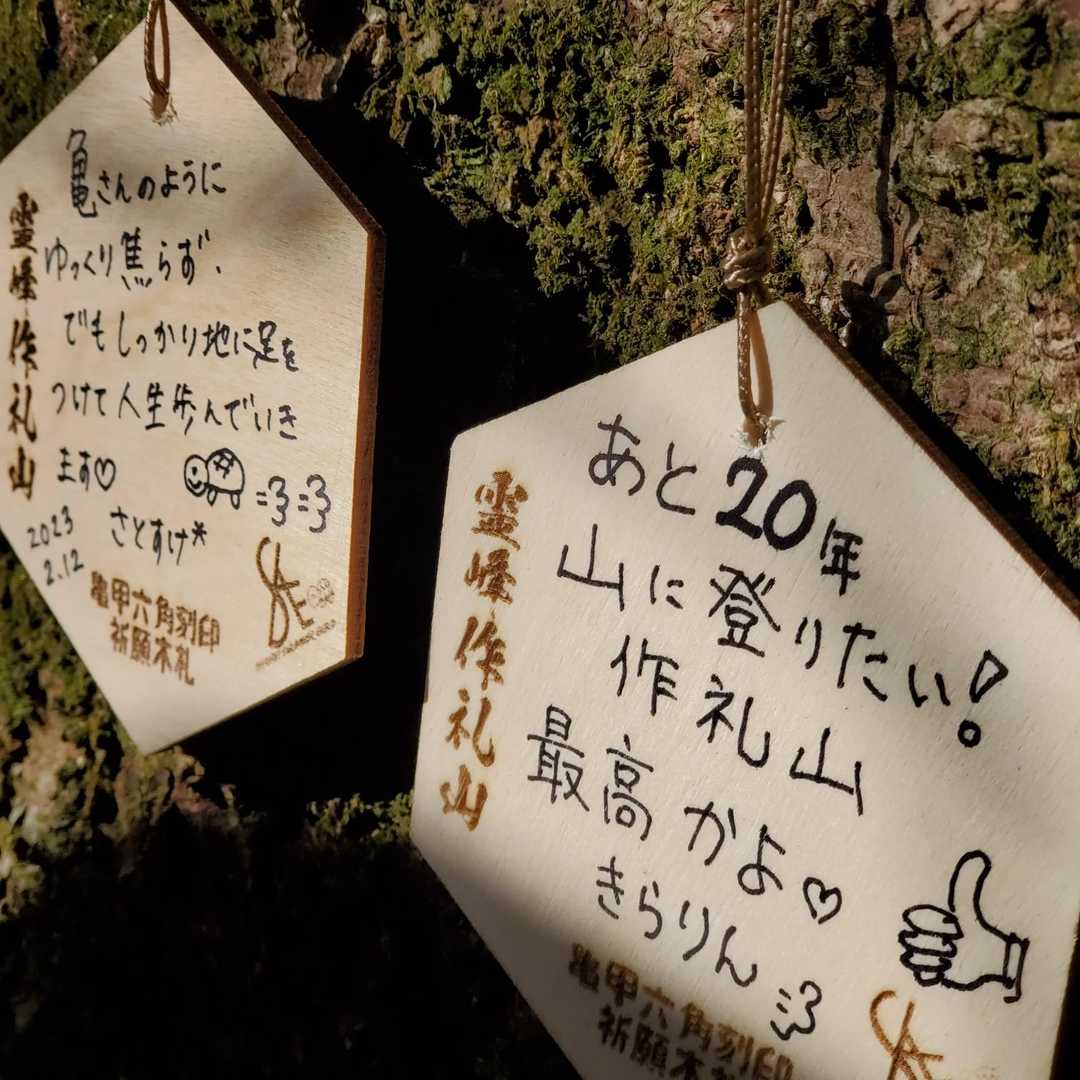 亀さんのように
ゆっくり焦らず、
でもしっかり地に足を
つけて人生歩んでいき
ます♡
さとすけ*
2023
2.12
霊峰作礼山
亀甲六角刻印
祈願木札
あと20年
山に登りたい!
作礼山
最高かよ♡
きらりん
霊峰作礼山
亀甲六角刻印
祈願木札